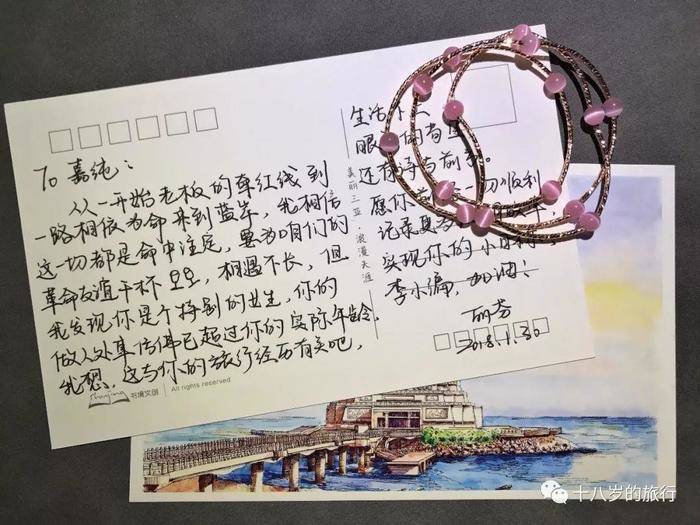 To 嘉纯：
从一开始老板的牵红线到
一路相依为命来到蓝岸，我相信
这一切都是命中注定，要为咱们的
革命友谊干杯，相遇不长，但
我发现你是个特别的女生，你的
做人处事仿佛已超过你的实际年龄，
我想，这与你的旅行经历有关吧，
书境文创
All rights reserved
美丽三亚·浪漫天涯
生活不
眼
还
愿你 一切顺利
记录更
实现你的小目标
李小编，加油：
丽芬
2018.1.30
十八岁的旅行